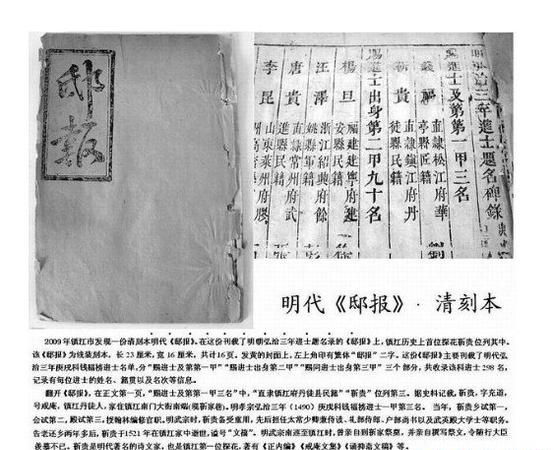 邸報
明弘治三年進士題名碑錄
賜進士及第第一甲三名
錢福 直隸松江府華亭縣匠籍
靳貴 直隸鎮江府丹徒縣民籍
賜進士出身第二甲九十名
楊旦 福建建寧府建安縣民籍
汪澤 浙江紹興府餘姚縣籍
唐貴 直隸常州府武進縣民籍
李昆 山東萊州府膠州
明代《邸报》·清刻本
2009年镇江市发现一份清刻本明代《邸报》。在这份刊载了明朝弘治三年进士题名录的《邸报》上，镇江历史上首位探花靳贵位列其中。
该《邸报》为线装刻本，长23厘米，宽16厘米，共计16页。发黄的封面上，左上角印有繁体“邸报”二字。这份《邸报》主要刊载了明代弘
治三年庚戌科钱福榜进士名单，分“赐进士及第第一甲”“赐进士出身第二甲”“赐同进士出身第三甲”三个部分，共收录该科进士298名，
记录有每位进士的姓名、籍贯以及名次等信息。
翻开《邸报》，在正文第一页，“赐进士及第第一甲三名”中，“直隶镇江府丹徒县民籍”“靳贵”位列第三。据史料记载，靳贵，字充道，
号戒庵，镇江丹徒人，家住镇江南门大街南端（现靳家巷）。明孝宗弘治三年（1490）庚戌科钱福榜进士一甲第三名。当年，靳贵乡试第一，
会试第二，殿试第三，授翰林编修官职。明武宗时，靳贵备受重用，先后担任太常少卿兼侍读、礼部侍郎、户部尚书以及武英殿大学士等职务。
告老还乡两年多后，靳贵于1521年在镇江家中逝世，谥号“文僖”。明武宗南巡至镇江时，曾亲自到靳家祭奠，并亲自撰写祭文，令随行大臣
羡慕不已。靳贵是明代著名的诗文家，也是镇江第一位探花，著有《正内编》《戒庵文集》《诵抑斋文稿》等。